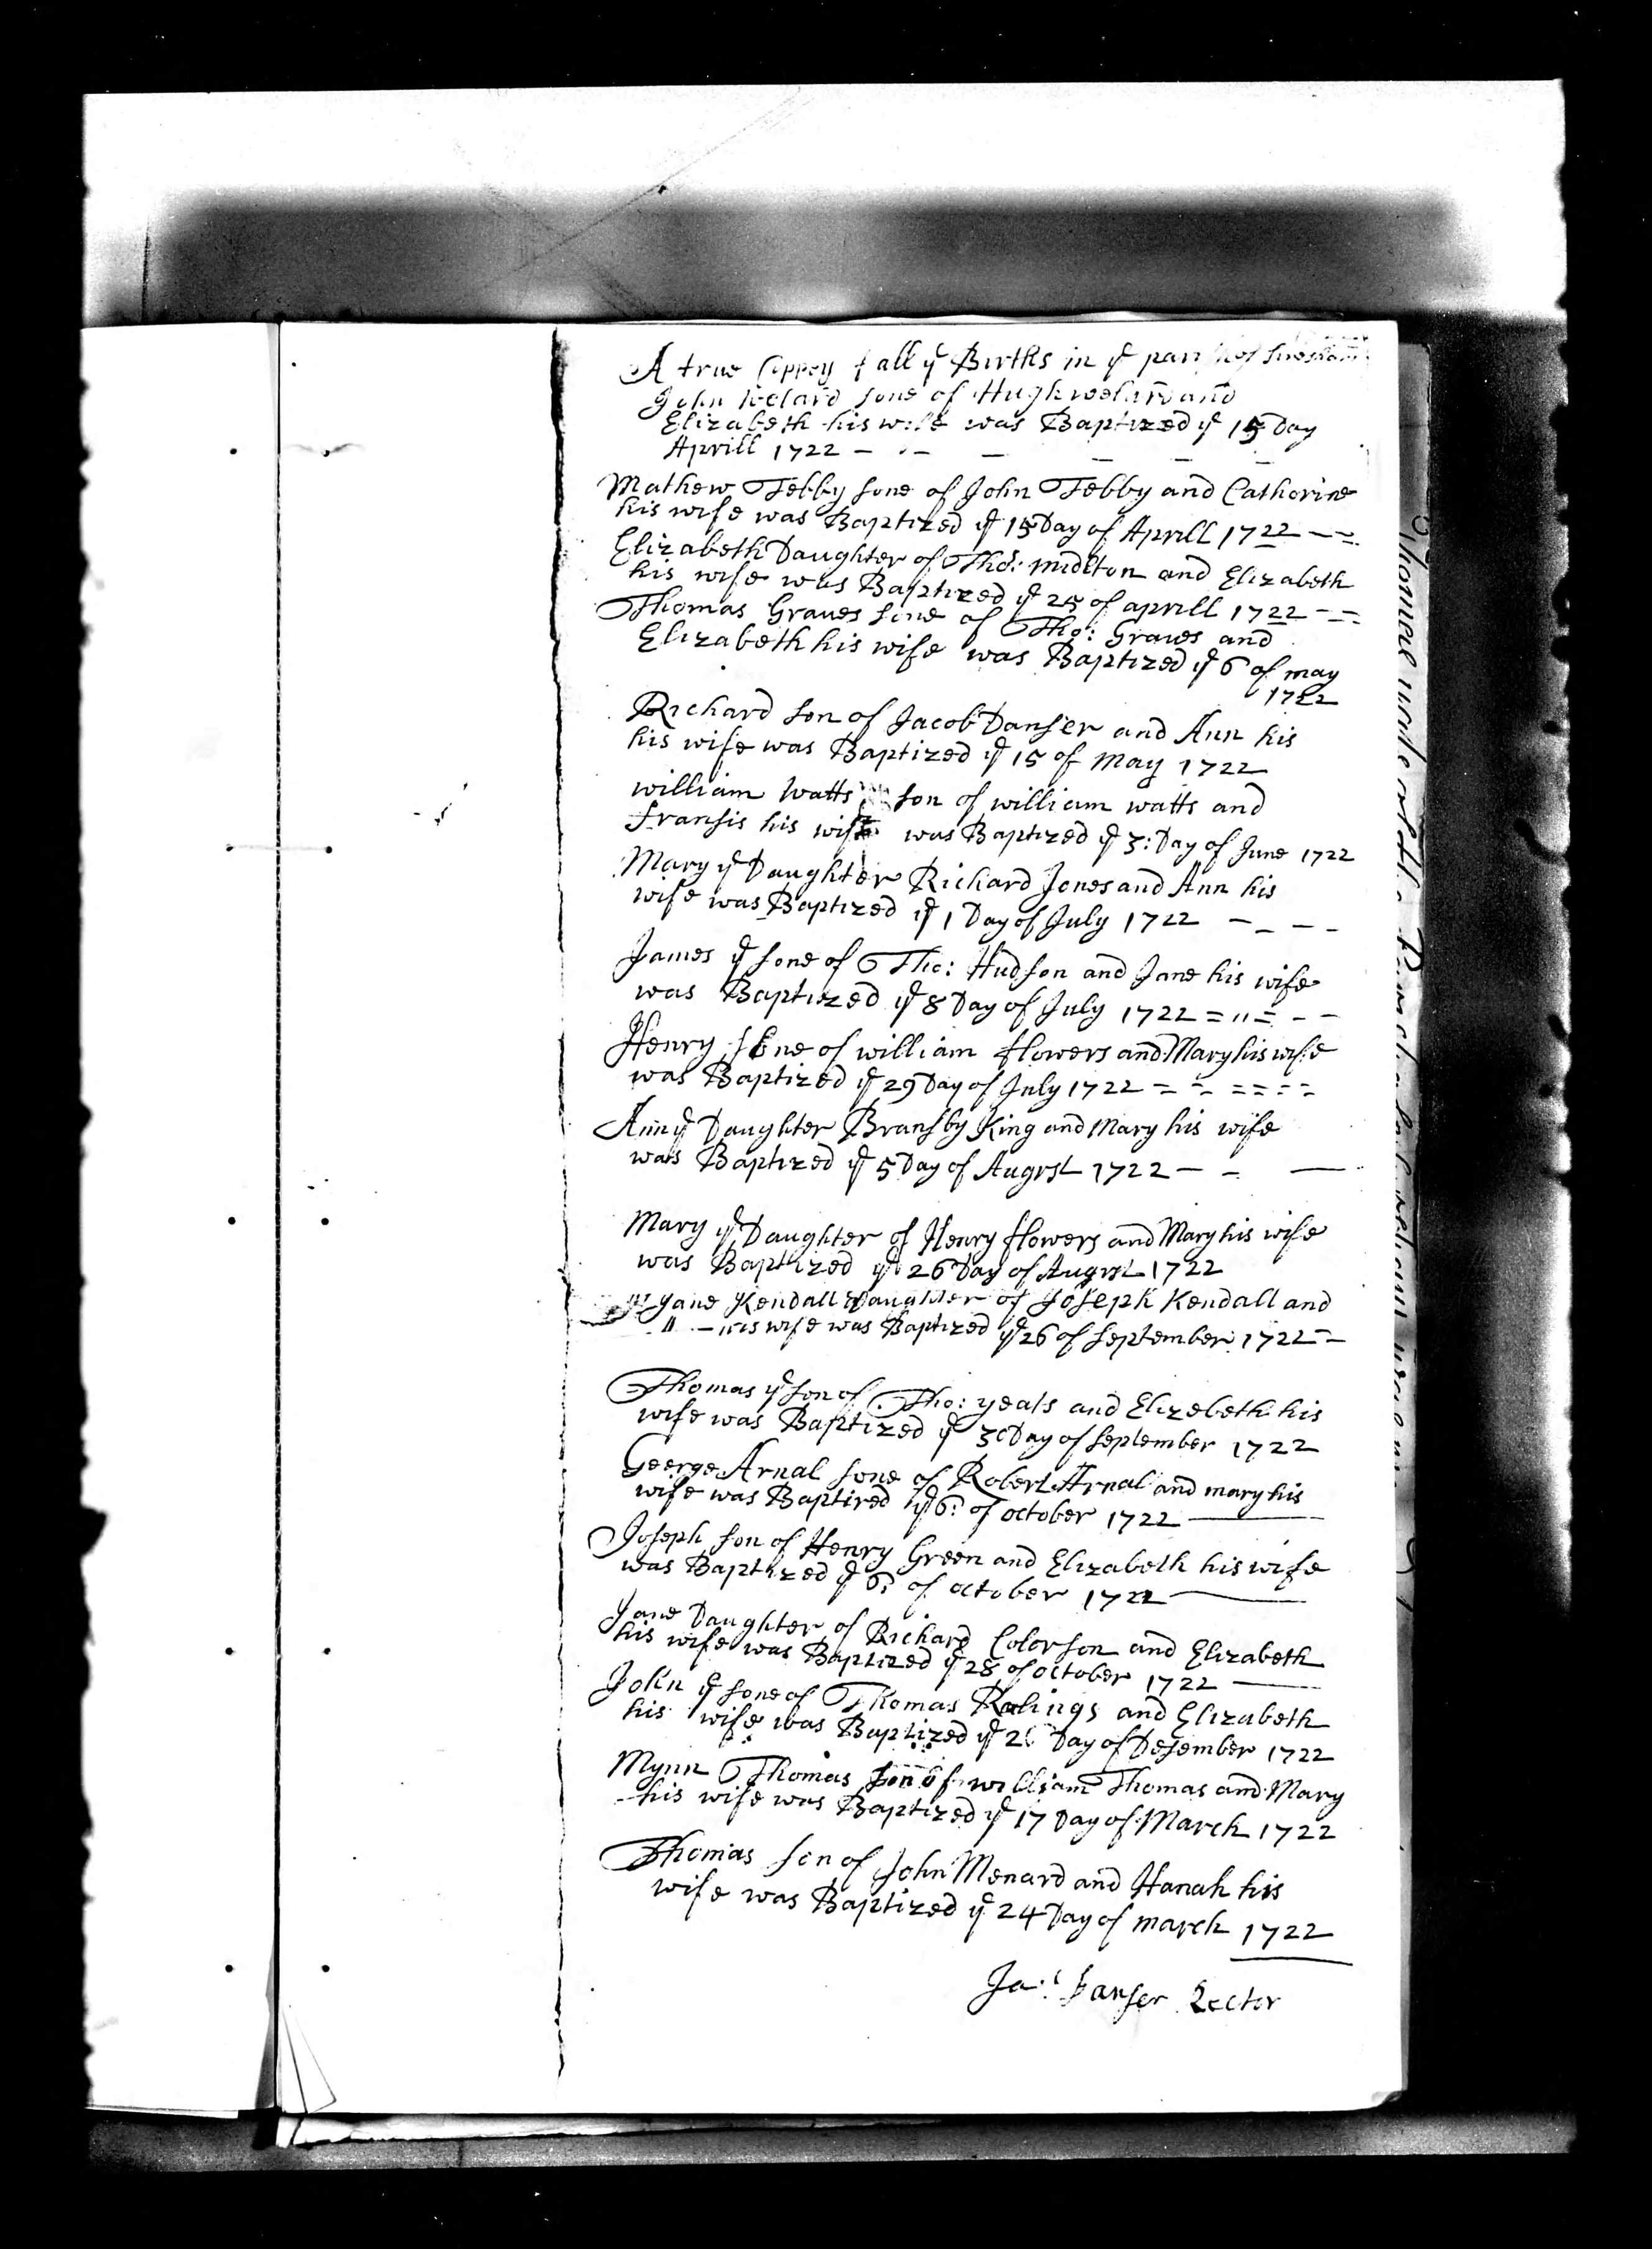 A true Coppey of all ye Births in ye parish of
John welard sone of Hugh welard and
Elizabeth his wife was Baptized ye 15 Day
Aprill 1722 - - - - - -
Mathew Tebby sone of John Tebby and Catherine
his wife was Baptized ye 15 Day of Aprill 1722 - -
Elizabeth Daughter of Tho: midlton and Elizabeth
his wife was Baptized ye 25 of aprill 1722 - =
Thomas Graues sone of Tho: Graues and
Elizabeth his wife was Baptized ye 6 of may
1722
Richard son of Jacob Danser and Ann his
his wife was Baptized ye 15 of May 1722
william Watts son of william watts and
fransis his wife was Baptized ye 3: Day of June 1722
Mary ye Daughter Richard Jones and Ann his
wife was Baptized ye 1 Day of July 1722 - - - -
James ye sone of Tho: Hudson and Jane his wife
was Baptized ye 8 Day of July 1722 = " = - -
Henry sone of william flowers and Mary his wife
was Baptized ye 29 Day of July 1722 = = = = = =
Ann ye Daughter Bransby King and Mary his wife
was Baptized ye 5 Day of Augrst 1722 - - -
Mary ye Daughter of Henry flowers and Mary his wife
was Baptized ye 26 Day of Augrst 1722
Jane Kendall Daughter of Joseph Kendall and
his wife was Baptized ye 26 of september 1722 = -
Thomas ye son of Tho: yeats and Elizebeth his
wife was Baptized ye 30 Day of september 1722
George Arnal sone of Robert Arnal and mary his
wife was Baptized ye 6: of october 1722
Joseph son of Henry Green and Elizabeth his wife
was Baptized ye 6: of october 1722
Jane Daughter of Richard Colerson and Elizabeth
his wife was Baptized ye 28 of october 1722
John ye sone of Thomas Ralings and Elizabeth
his wife was Baptized ye Day of Desember 1722
Mynn Thomas son of william Thomas and Mary
his wife was Baptized ye 17 Day of March 1722
Thomas son of John Menard and Hanah his
wife was Baptized ye 24 Day of march 1722
Ja: Danser Rector